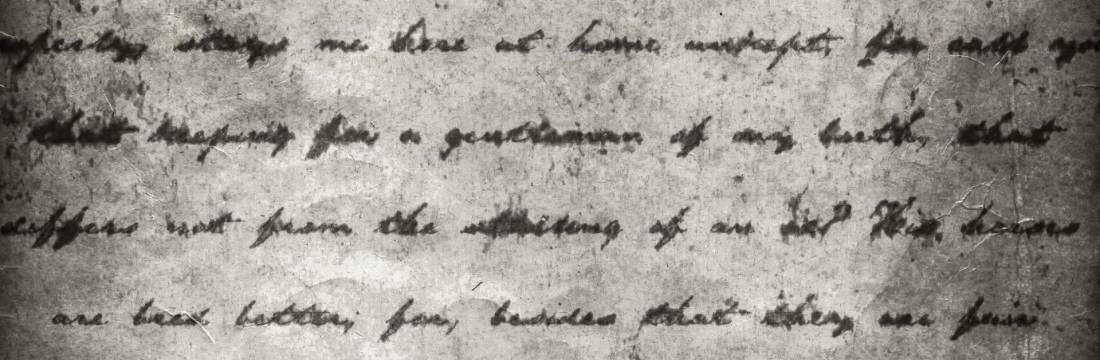 stays me here at home unkept; for call you
that keeping for a gentleman of my birth, that
differs not from the stalling of an ox? His horses
are bred better; for, besides that they are fair